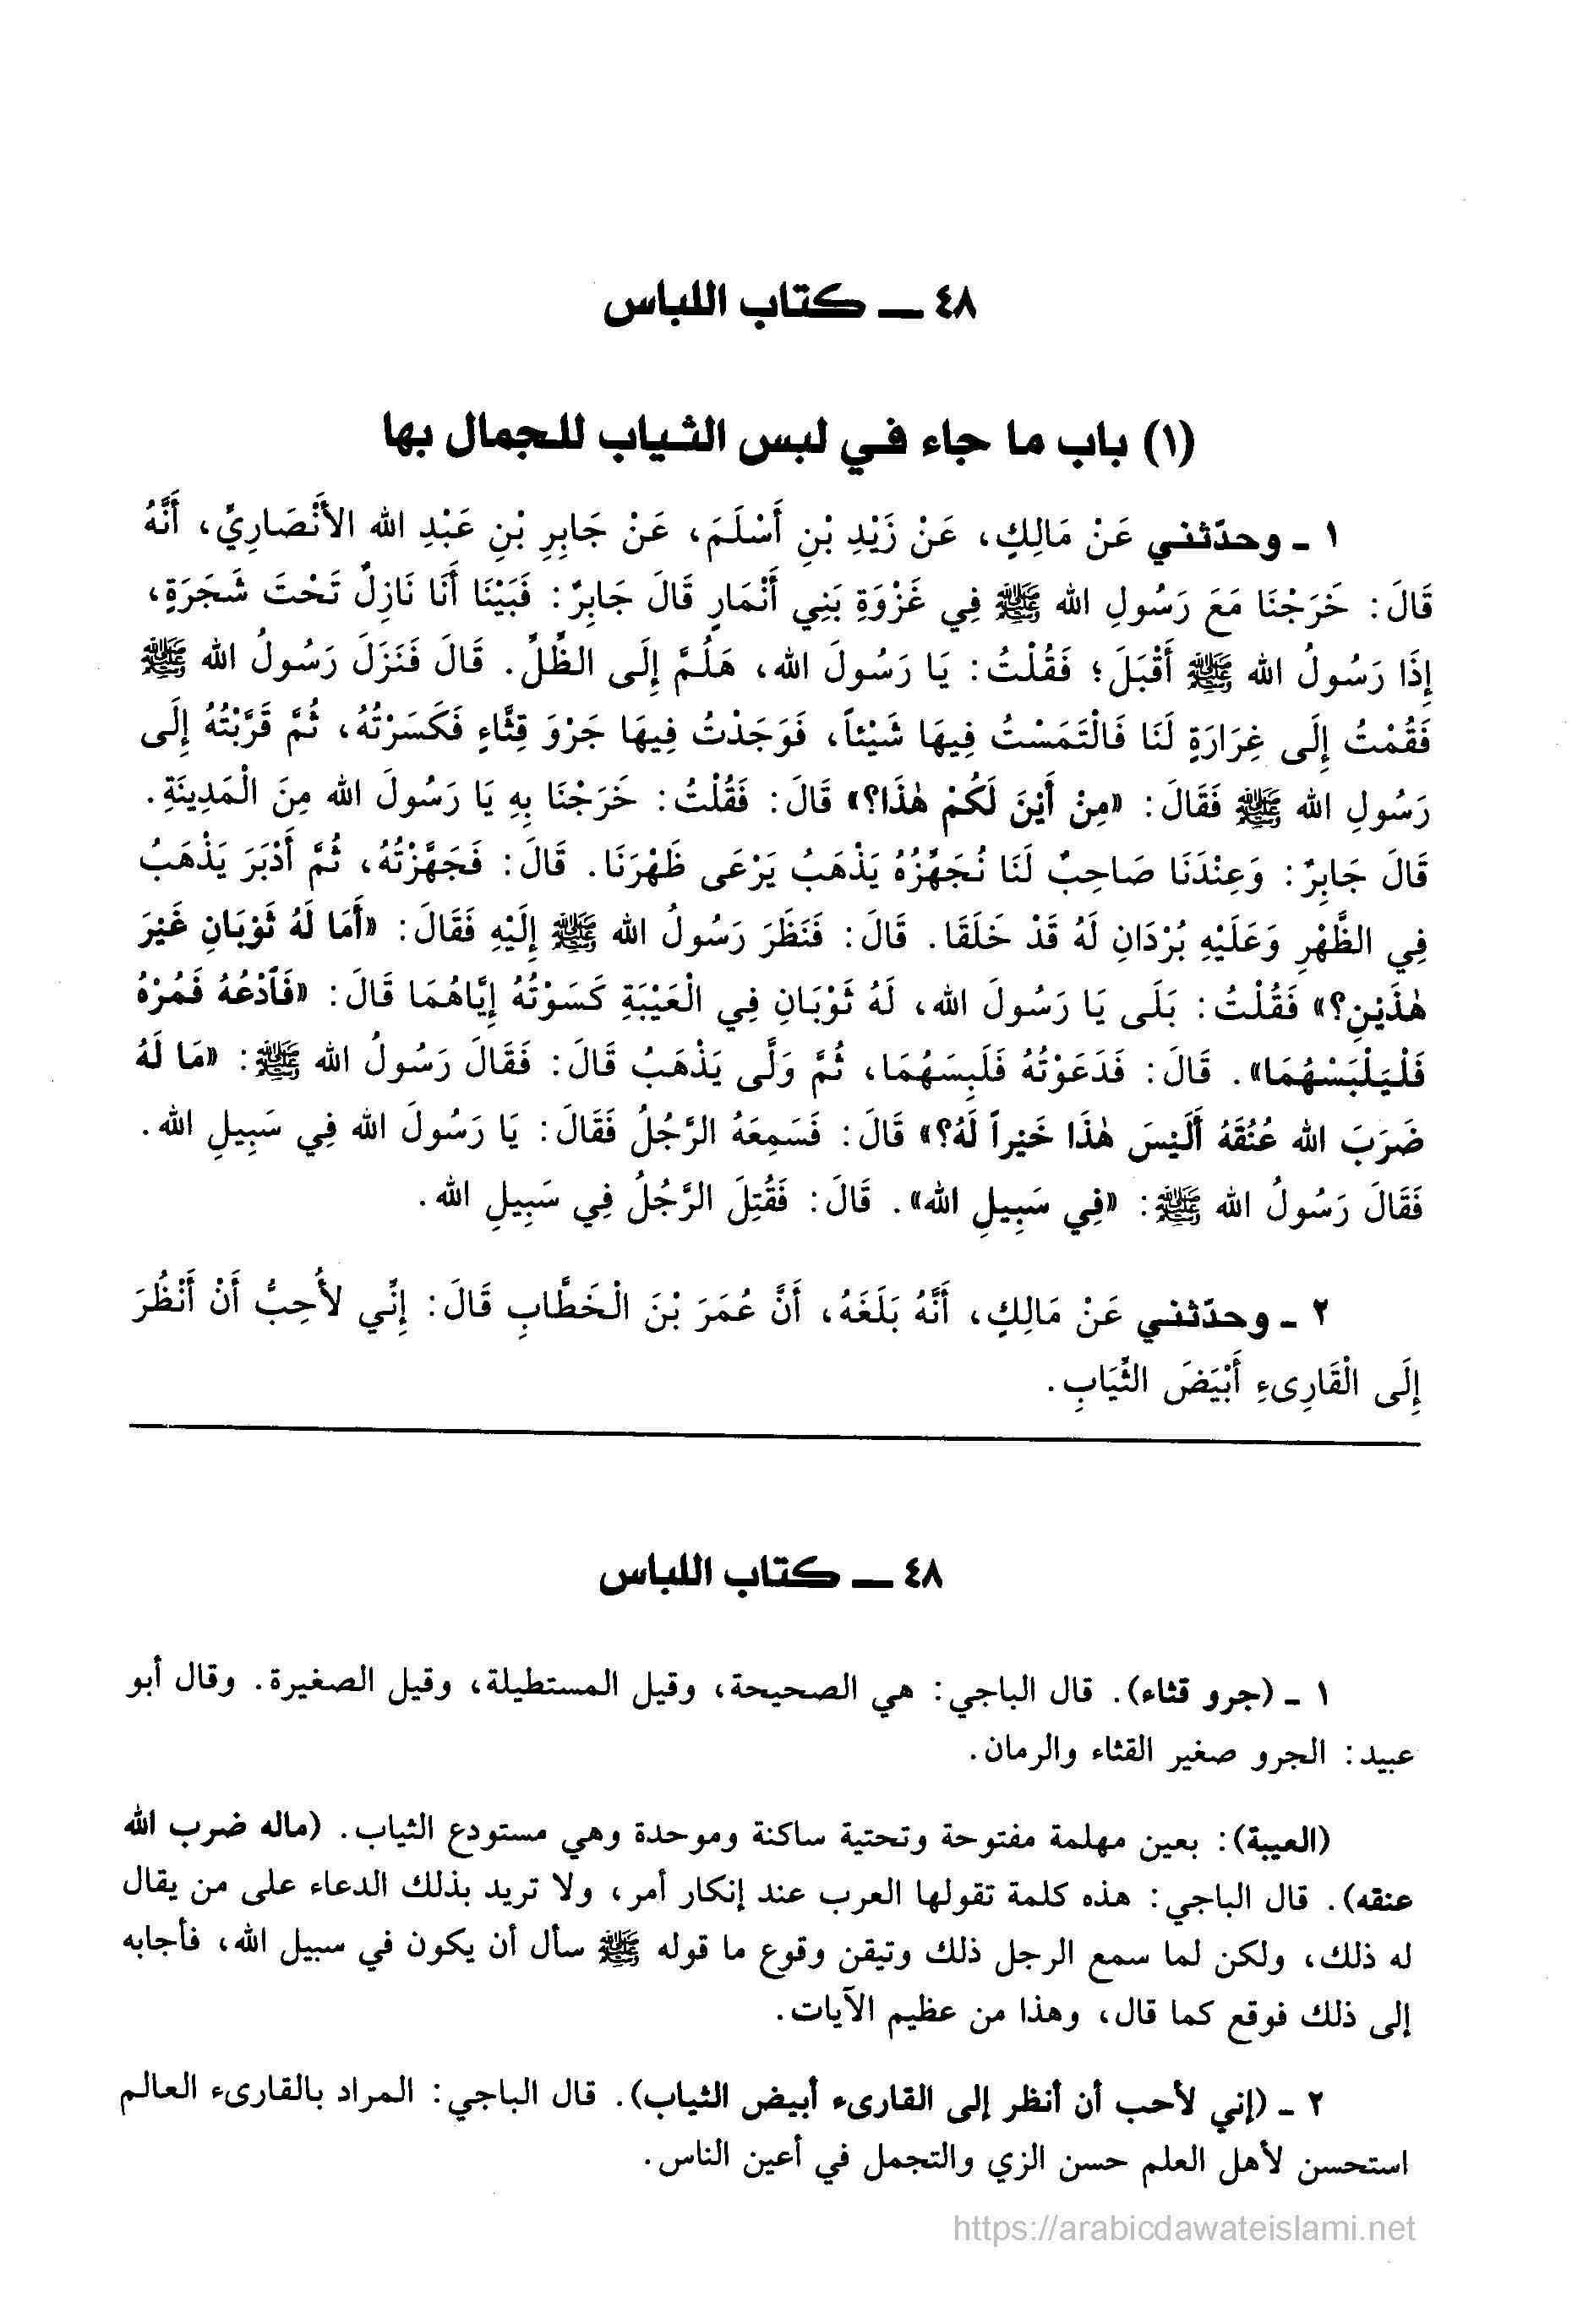 ٤٨ ــ كتاب اللباس
(١) باب ما جاء في لبس الثياب للجمال بها
١ ـ وحدّثني عَنْ مَالِكٍ، عَنْ زَيْدِ بْنِ أَسْلَمَ، عَنْ جَابِرِ بْنِ عَبْدِ الله الأَنْصَارِيِّ، أَنَّهُ
قَالَ: خَرَجْنَا مَعَ رَسُولِ الله ﷺ فِي غَزْوَةِ بَنِي أَنْمَارٍ قَالَ جَابِرٌ: فَبَيْنَا أَنَا نَازِلٌ تَحْتَ شَجَرَةٍ،
إِذَا رَسُولُ الله ﷺ أَقْبَلَ؛ فَقُلْتُ: يَا رَسُولَ الله، هَلُمَّ إِلَى الظِّلِّ. قَالَ فَنَزَلَ رَسُولُ الله ﷺ
فَقُمْتُ إِلَى غِرَارَةٍ لَنَا فَالْتَمَسْتُ فِيهَا شَيْئاً، فَوَجَدْتُ فِيهَا جَرْوَ قِثَّاءٍ فَكَسَرْتُهُ، ثُمَّ قَرَّبْتُهُ إِلَى
رَسُولِ الله ﷺ فَقَالَ: «مِنْ أَيْنَ لَكُمْ هٰذَا؟» قَالَ: فَقُلْتُ: خَرَجْنَا بِهِ يَا رَسُولَ الله مِنَ الْمَدِينَةِ.
قَالَ جَابِرٌ: وَعِنْدَنَا صَاحِبٌ لَنَا نُجَهِّزُهُ يَذْهَبُ يَرْعَى ظَهْرَنَا. قَالَ: فَجَهَّزْتُهُ، ثُمَّ أَدْبَرَ يَذْهَبُ
فِي الظَّهْرِ وَعَلَيْهِ بُرْدَانِ لَهُ قَدْ خَلَقَا. قَالَ: فَنَظَرَ رَسُولُ الله ﷺ إِلَيْهِ فَقَالَ: «أَمَا لَهُ ثَوْبَانِ غَيْرَ
هٰذَيْنِ؟» فَقُلْتُ: بَلَى يَا رَسُولَ الله، لَهُ ثَوْبَانِ فِي الْعَيْبَةِ كَسَوْتُهُ إِيَّاهُمَا قَالَ: «فَادْعُهُ فَمُرْهُ
فَلْيَلْبَسْهُمَا». قَالَ: فَدَعَوْتُهُ فَلَبِسَهُمَا، ثُمَّ وَلَّى يَذْهَبُ قَالَ: فَقَالَ رَسُولُ الله ﷺ: «مَا لَهُ
ضَرَبَ الله عُنُقَهُ أَلَيْسَ هٰذَا خَيْراً لَهُ؟» قَالَ: فَسَمِعَهُ الرَّجُلُ فَقَالَ: يَا رَسُولَ الله فِي سَبِيلِ الله.
فَقَالَ رَسُولُ الله ﷺ: «فِي سَبِيلِ الله». قَالَ: فَقُتِلَ الرَّجُلُ فِي سَبِيلِ الله.
٢ ـ وحدّثني عَنْ مَالِكٍ، أَنَّهُ بَلَغَهُ، أَنَّ عُمَرَ بْنَ الْخَطَّابِ قَالَ: إِنِّي لأُحِبُّ أَنْ أَنْظُرَ
إِلَى الْقَارِىءِ أَبْيَضَ الثِّيَابِ.
٤٨ ــ كتاب اللباس
١ ـ (جرو قثاء). قال الباجي: هي الصحيحة، وقيل المستطيلة، وقيل الصغيرة. وقال أبو
عبيد: الجرو صغير القثاء والرمان.
(العيبة): بعين مهملة مفتوحة وتحتية ساكنة وموحدة وهي مستودع الثياب. (ماله ضرب الله
عنقه). قال الباجي: هذه كلمة تقولها العرب عند إنكار أمر، ولا تريد بذلك الدعاء على من يقال
له ذلك، ولكن لما سمع الرجل ذلك وتيقن وقوع ما قوله ﷺ سأل أن يكون في سبيل الله، فأجابه
إلى ذلك فوقع كما قال، وهذا من عظيم الآيات.
٢ ـ (إني لأحب أن أنظر إلى القارىء أبيض الثياب). قال الباجي: المراد بالقارىء العالم
استحسن لأهل العلم حسن الزي والتجمل في أعين الناس.
https://arabicdawateislami.net